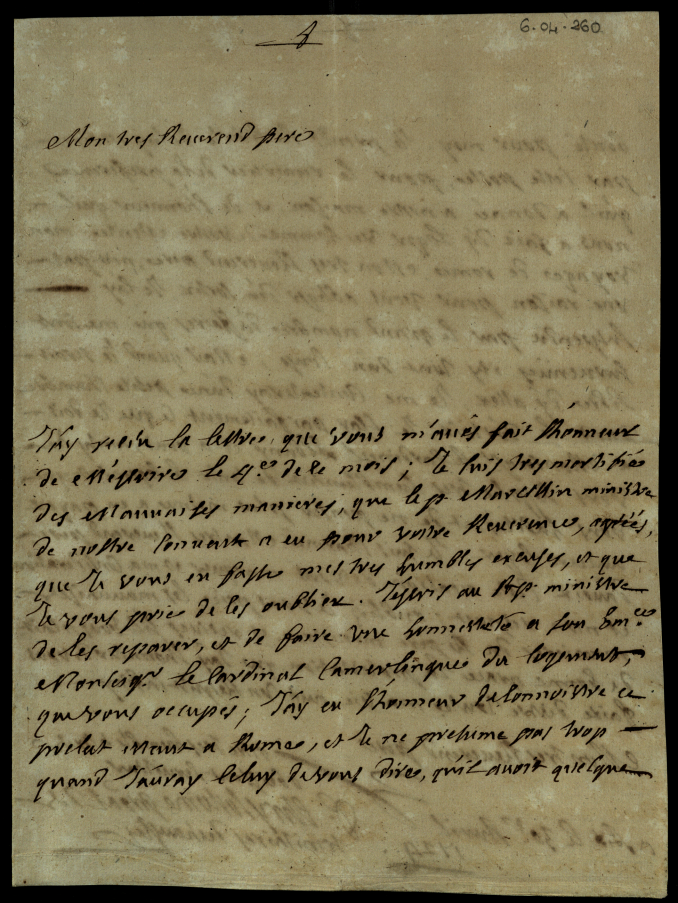 4
6.04.260
Mon tres Reuerend pere
J'ay receu la lettre, que vous m'aués fait l'honneur
de M'éscrire le 4.e de ce mois; Je suis tres mortifié
des Mauuaises manieres, que le p. Marcellin ministre
de nostre Conuent a eu pour vostre Reuerence, agréés,
que Je vous en fasse mes tres humbles excuses, et que
Je vous prie de les oublier. J'éscris au R.p. ministre
de les reparer, et de faire vne honnesteté a son Em.ce
Monseig.r le Cardinal Camerlingue du logement,
que vous occupés; J'ay eu l'honneur de Connoistre ce
prelat estant a Rome, et Je ne presume pas trop
quand J'auray celuy de vous dire, qu'il auoit quelque